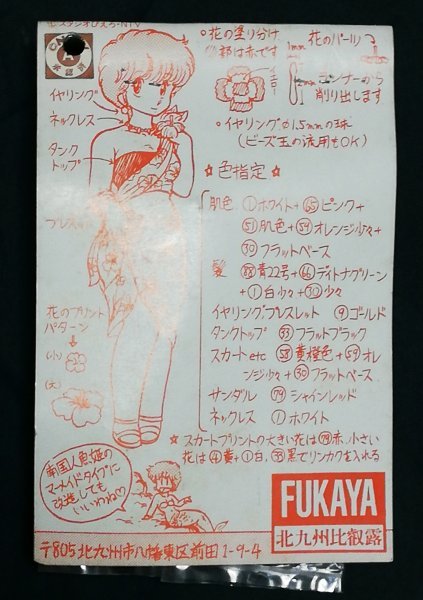 ©スタジオぴえろ・NTV
イヤリング
ネックレス
タンクトップ
ブレス
花のプリント
パターン
(小)
(大)
。花の塗り分け
部は赤です
イエロー
花のパーツ
1mm
1mm
ランナーから
削り出します
。イヤリングが1.5mmの球
(ビーズ玉の流用もOK)
☆色指定☆
肌色 ①ホワイト+㊿ピンク+
51肌色+59オレンジ少々+
㉚フラットベース
髪 88青22号+66デイトナグリーン
+①白少々+㉚少々
イヤリング、ブレスレット ⑨ゴールド
タンクトップ ㉝フラットブラック
スカートetc 58黄橙色+59オレ
ンジ少々+㉚フラットベース
サンダル 79シャインレッド
ネックレス ①ホワイト
☆スカートプリントの大きい花は79赤、小さい
花は④黄+①白、㉝黒でリンカクを入れる
南国人魚姫の
マーメイドタイプに
改造しても
いいわね♡
FUKAYA
北九州比叡露
〒805 北九州市八幡東区前田1-9-4